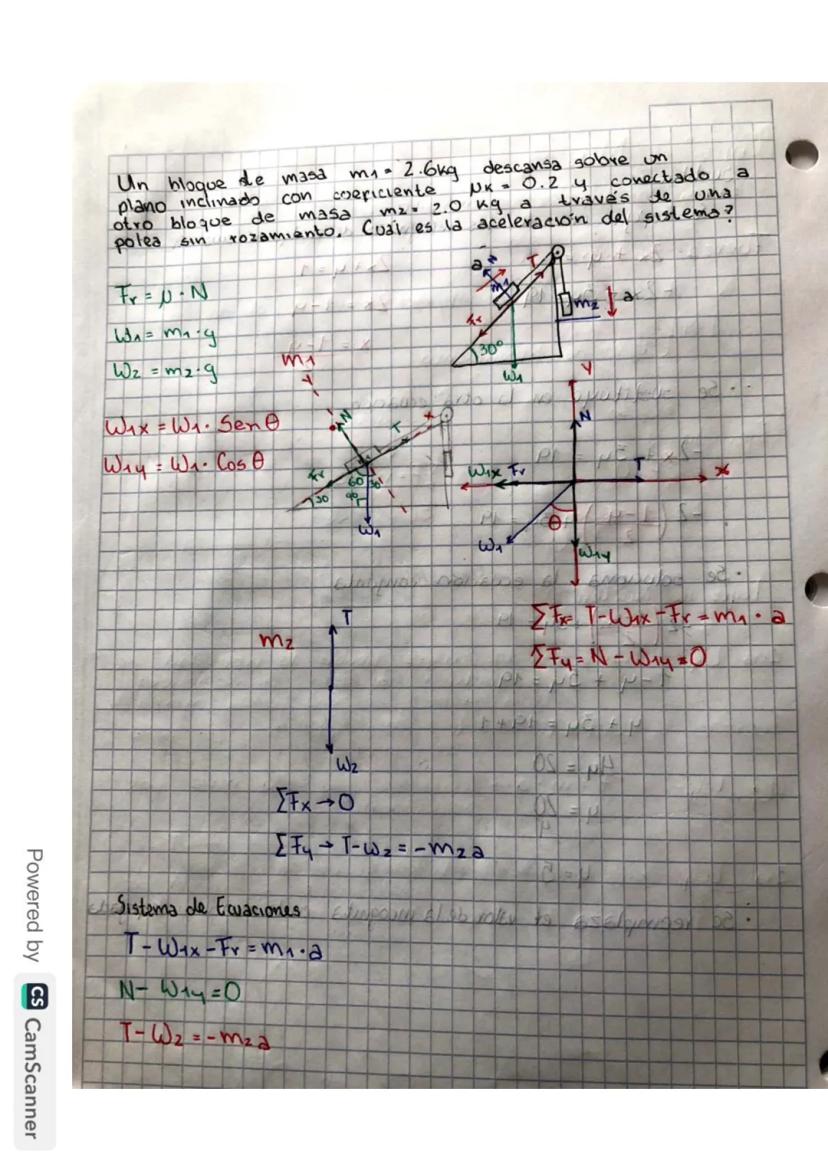 Un bloque de masa m1 = 2.6kg descansa sobre un
plano inclinado con coeficiente μk = 0.2 y conectado a
otro bloque de masa m2 = 2.0 kg a través de una
polea sin rozamiento. Cual es la aceleración del sistema?
Fr = μ · N
W1 = m1 · g
W2 = m2 · g
W1x = W1 · Sen θ
W1y = W1 · Cos θ
a
N
T
m1
fr
30°
W1
m2
a
m1
y
N
T
x
fr
60 30°
30
90
W1
y
N
W1x Fr
T
x
θ
W1
W1y
ΣFx= T-W1x-Fr = m1 · a
ΣFy = N - W1y = 0
m2
T
W2
ΣFx → 0
ΣFy → T-W2 = -m2a
Sistema de Ecuaciones
T - W1x - Fr = m1 · a
N - W1y = 0
T - W2 = -m2a
Powered by CS CamScanner